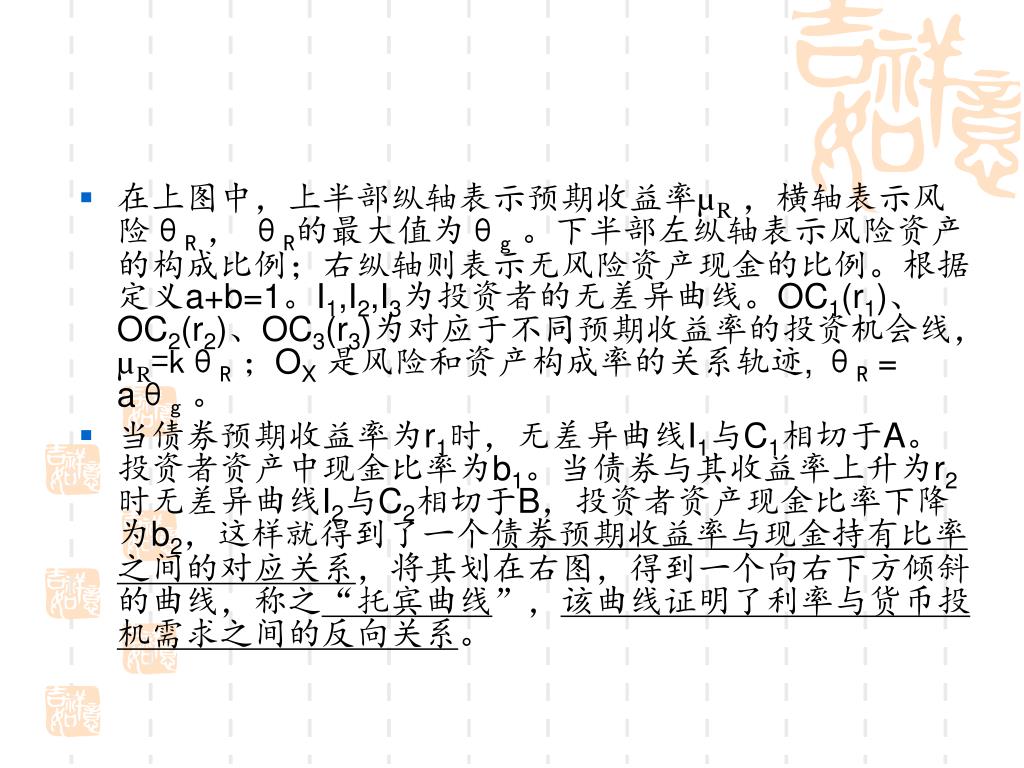 吉祥如意
在上图中，上半部纵轴表示预期收益率μR ，横轴表示风
险θR ， θR的最大值为θg 。下半部左纵轴表示风险资产
的构成比例；右纵轴则表示无风险资产现金的比例。根据
定义a+b=1。I1,I2,I3为投资者的无差异曲线。OC1(r1)、
OC2(r2)、OC3(r3)为对应于不同预期收益率的投资机会线，
μR=kθR ；OX 是风险和资产构成率的关系轨迹, θR =
aθg 。
当债券预期收益率为r1时，无差异曲线I1与C1相切于A。
投资者资产中现金比率为b1。当债券与其收益率上升为r2
时无差异曲线I2与C2相切于B，投资者资产现金比率下降
为b2，这样就得到了一个债券预期收益率与现金持有比率
之间的对应关系，将其划在右图，得到一个向右下方倾斜
的曲线，称之“托宾曲线”，该曲线证明了利率与货币投
机需求之间的反向关系。
吉祥如意
吉祥如意
吉祥如意
吉祥如意
吉祥如意
吉祥如意